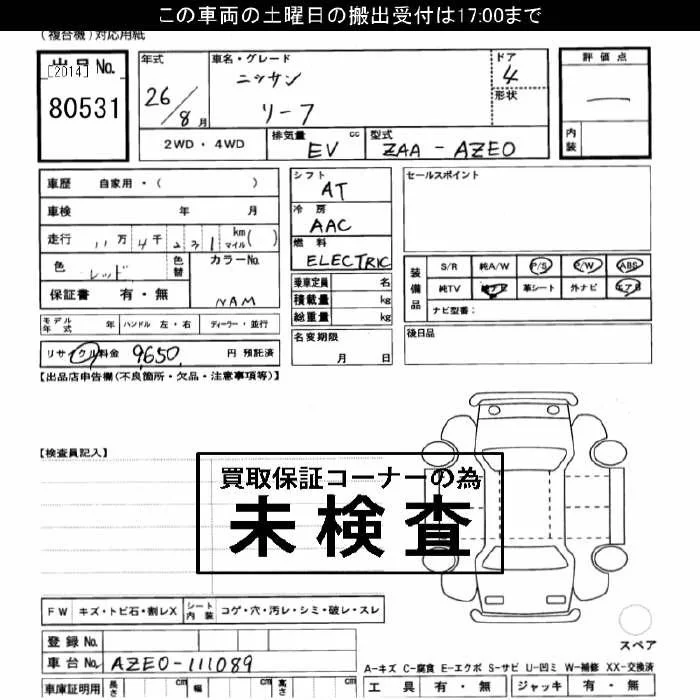 この車両の土曜日の搬出受付は17:00まで
(複合機)対応用紙
出品No.
[2014]
80531
年式
26/8月
車名・グレード
ニッサン
リーフ
ドア
4
形状
評価点
内装
2WD・4WD
排気量 cc
EV
型式
ZAA-AZE0
車歴 自家用・( )
車検 年 月
走行 11万4千231 km マイル( )
色 レッド 色替 カラーNo.
NAM
保証書 有・無
モデル年式 年 ハンドル 左・右 ディーラー・並行
リサイクル料金 9650 円 預託済
シフト
AT
冷房
AAC
燃料
ELECTRIC
乗車定員 名
積載量 kg
総重量 kg
名変期限
月 日
セールスポイント
装備品
S/R 純A/W P/S P/W ABS
純TV 純ナビ 革シート 外ナビ エアB
ナビ型番:
後日品
【出品店申告欄(不良箇所・欠品・注意事項等)】
【検査員記入】
買取保証コーナーの為
未検査
FW キズ・トビ石・割レX シート内装 コゲ・穴・汚レ・シミ・破レ・スレ
登録No.
車台No. AZE0-111089
車庫証明用 長さ cm 幅 cm 高さ cm
スペア
A-キズ C-腐食 E-エクボ S-サビ U-凹ミ W-補修 XX-交換済
工具 有・無 ジャッキ 有・無